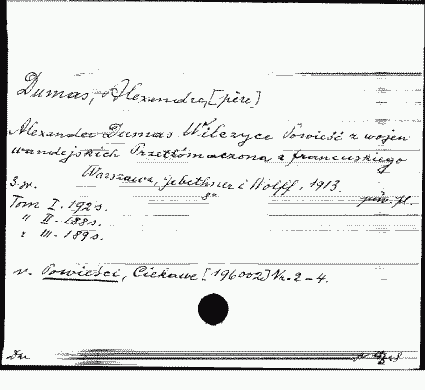 Dumas, Alexandre, [père]
Alexander Dumas Wilczyce Powieść z wojen
wandejskich Przetłómaczona z francuskiego
Warszawa, Gebethner i Wolff, 1913.
3 w. 8° piw. pl.
Tom I. 192 s.
" II - 188 s.
" III - 189 s.
v. Powieści, Ciekawe [196002] Nr. 2-4.
Du